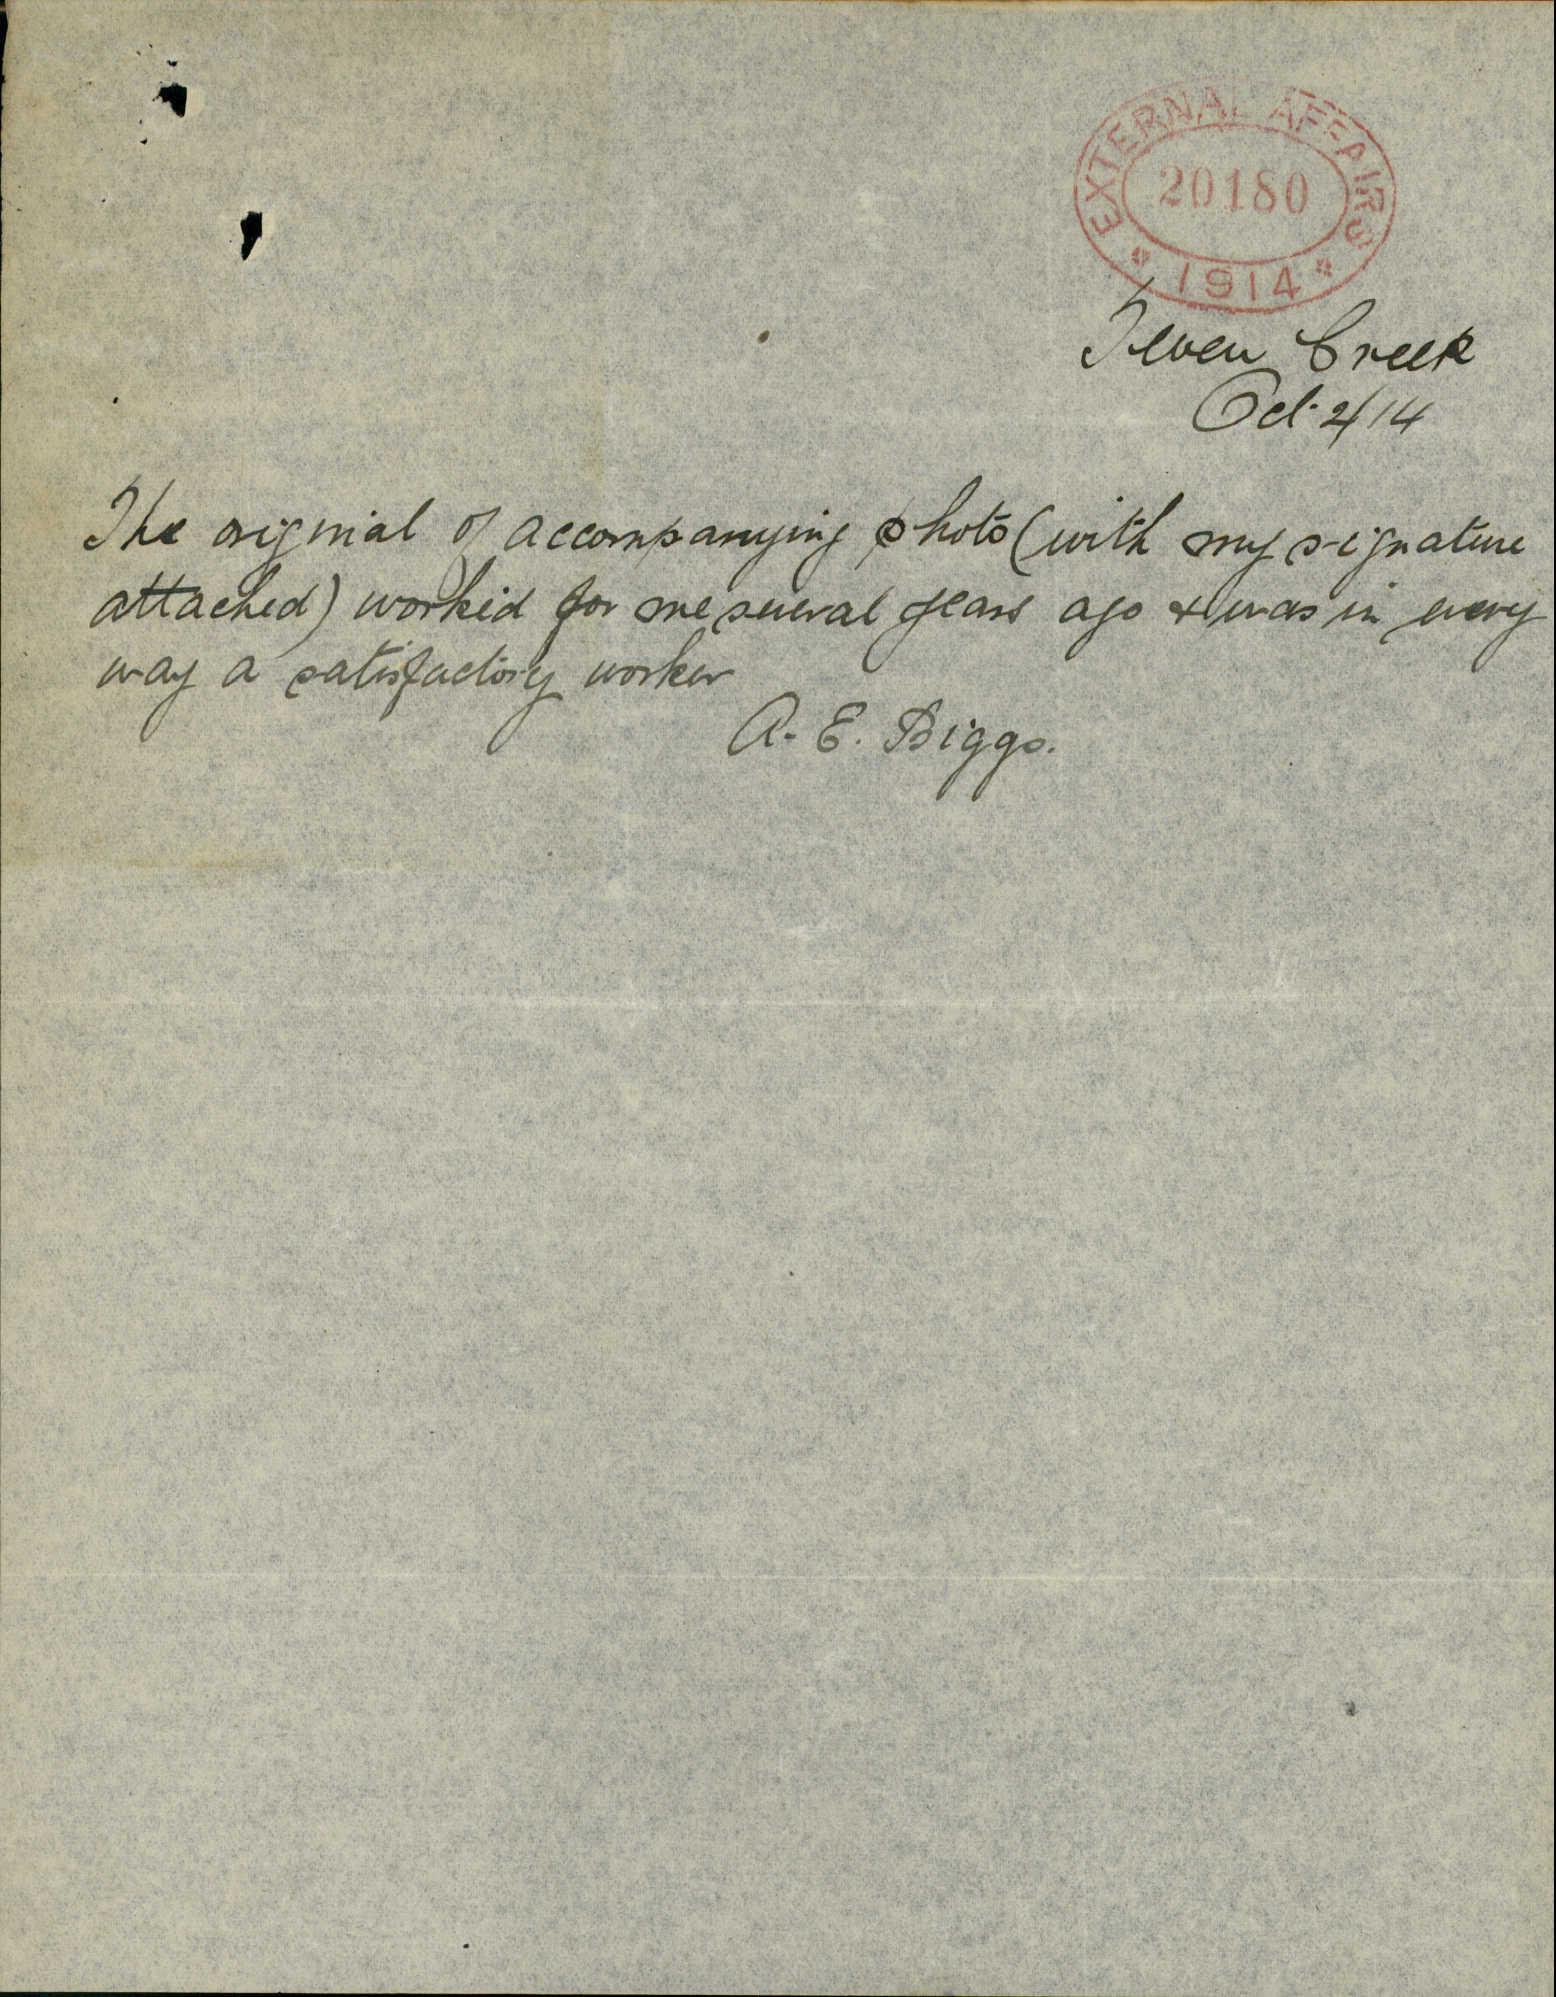 EXTERNAL AFFAIRS
20180
* 1914 *
Teven Creek
Oct. 2/14
The original of accompanying photo (with my signature
attached) worked for me several years ago & was in every
way a satisfactory worker
A. E. Biggs.